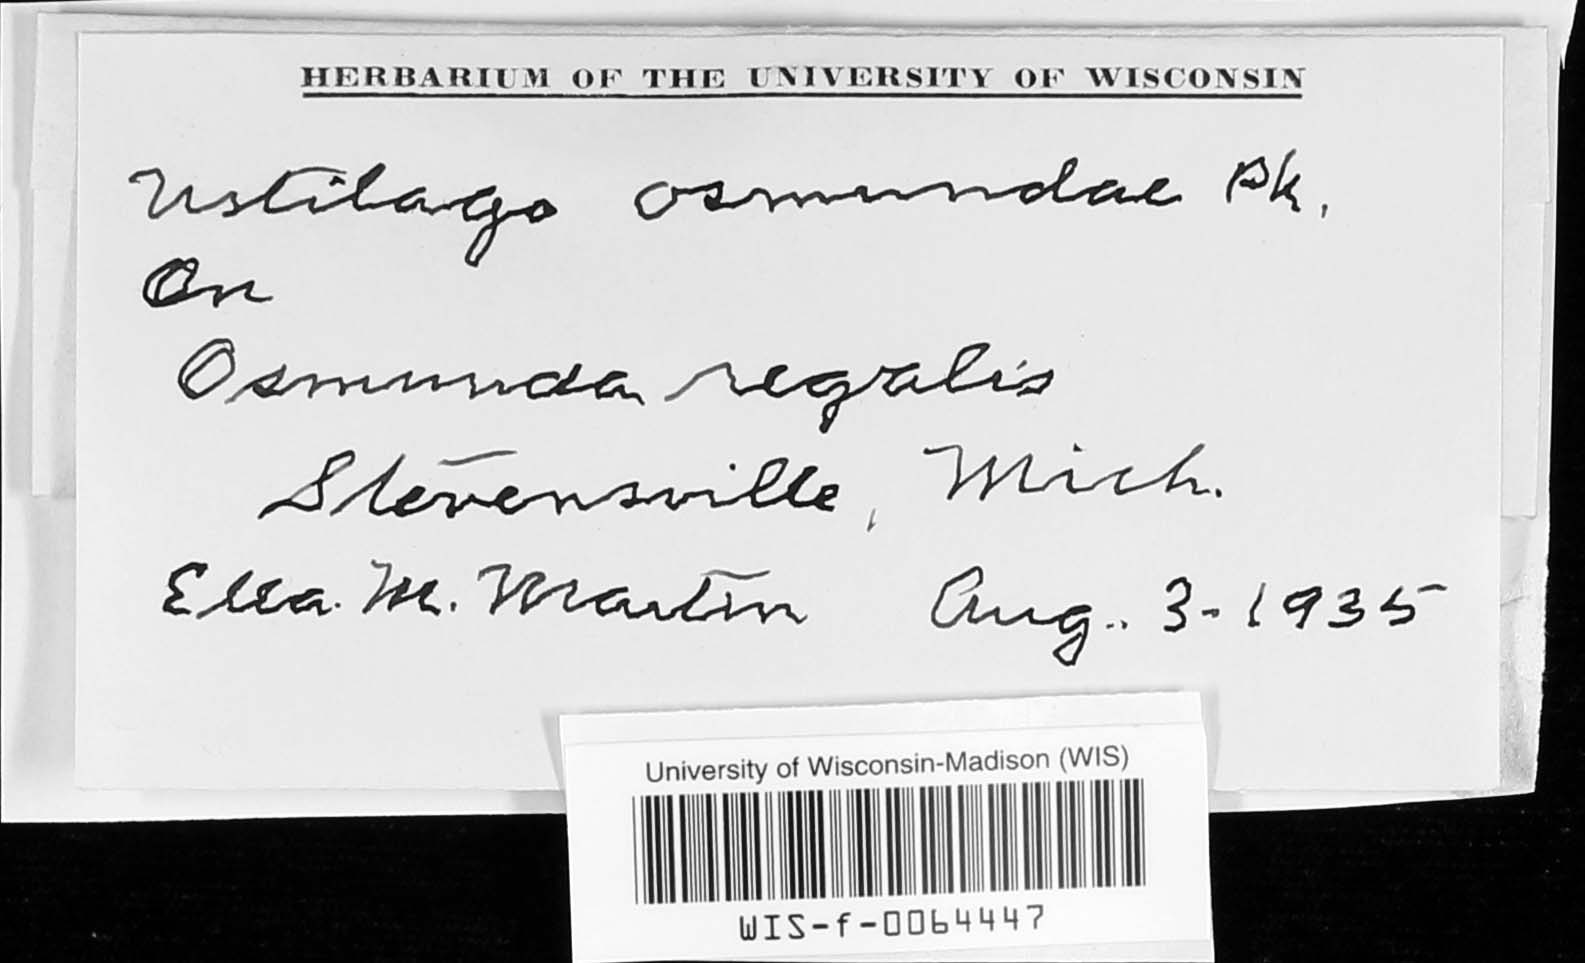 HERBARIUM OF THE UNIVERSITY OF WISCONSIN
Ustilago osmundae Pk.
On
Osmunda regalis
Stevensville, Mich.
Ella M. Martin Aug. 3-1935
University of Wisconsin-Madison (WIS)
WIS-f-0064447